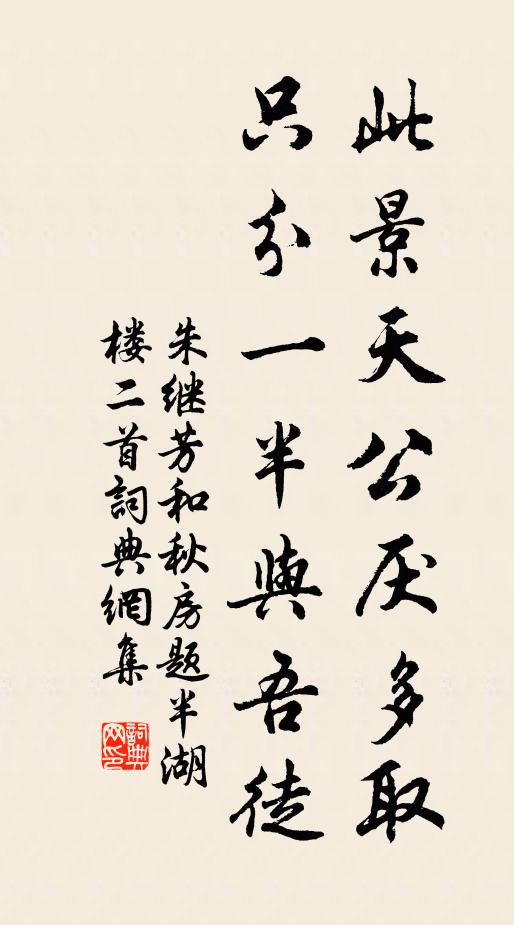 此景天公厌多取
只分一半與吾徒
朱继芳和秋房题半湖
楼二首詞典網集
詞典
网印